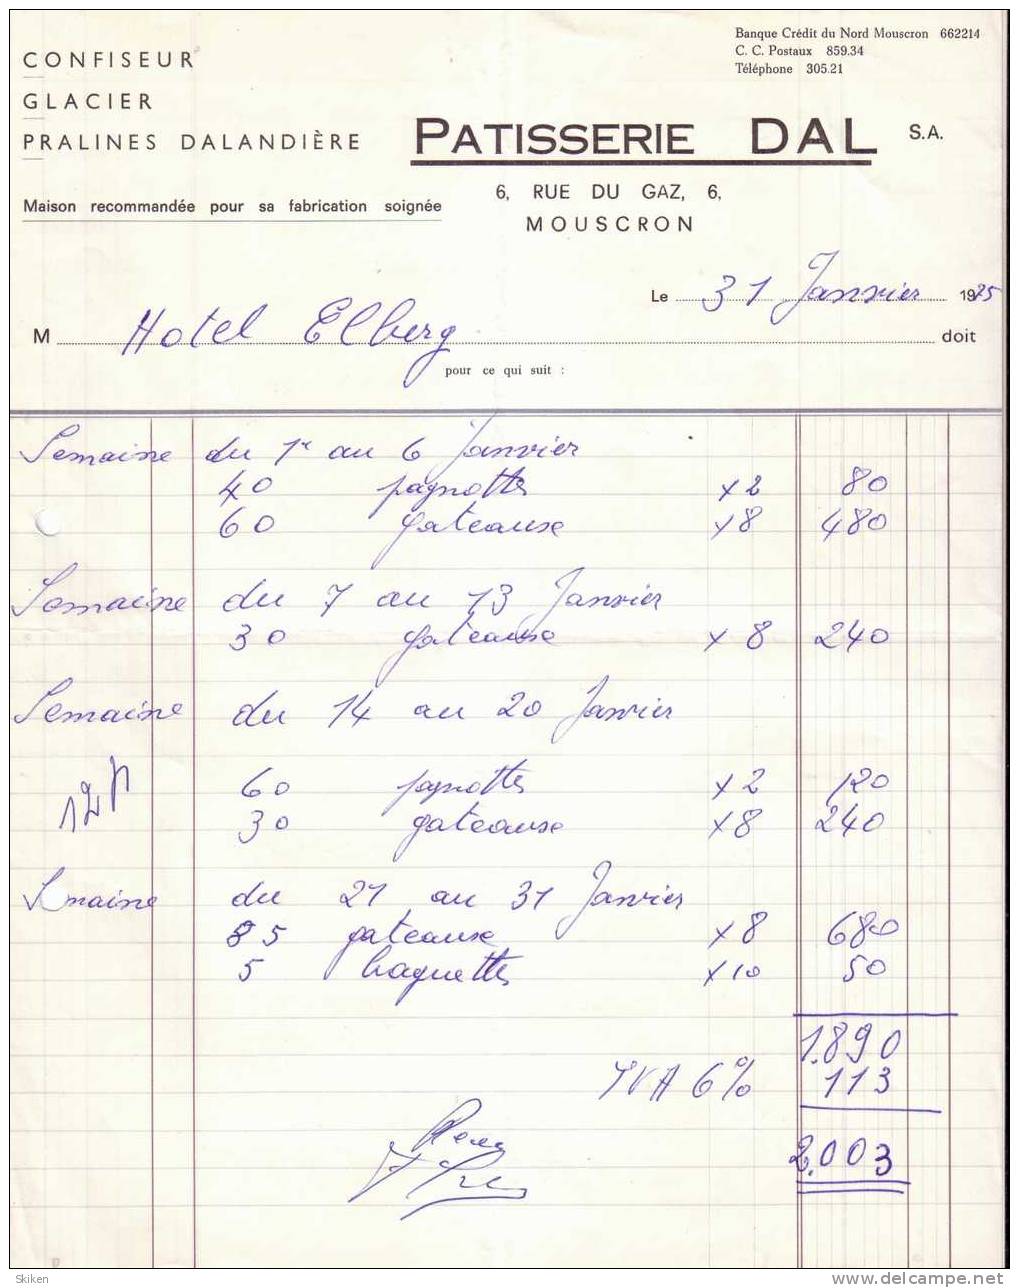 Banque Crédit du Nord Mouscron 662214
C. C. Postaux 859.34
Téléphone 305.21
CONFISEUR
GLACIER
PRALINES DALANDIÈRE
PATISSERIE DAL S.A.
Maison recommandée pour sa fabrication soignée
6, RUE DU GAZ, 6,
MOUSCRON
Le 31 Janvier 19
M Hotel Elberg doit
pour ce qui suit :
Semaine du 1r au 6 Janvier
40 pagnottes x2 80
60 gateause x8 480
Semaine du 7 au 13 Janvier
30 gateause x 8 240
Semaine du 14 au 20 Janvier
60 pagnottes x2 120
30 gateause x8 240
Semaine du 21 au 31 Janvier
85 gateause x8 680
5 baguettes x10 50
1.890
TVA 6% 113
2.003
Skiken
www.delcampe.net